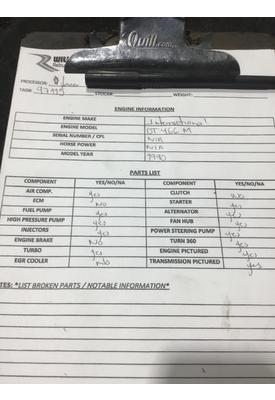 Quill.com
PROCESSOR:
TAG#: 97115 STOCK#: WEIGHT:
ENGINE INFORMATION
ENGINE MAKE International
ENGINE MODEL DT 466 M
SERIAL NUMBER / CPL N/A
HORSE POWER N/A
MODEL YEAR 1990
PARTS LIST
COMPONENT YES/NO/NA COMPONENT YES/NO/NA
AIR COMP. yes CLUTCH NO
ECM NO STARTER yes
FUEL PUMP yes ALTERNATOR yes
HIGH PRESSURE PUMP yes FAN HUB yes
INJECTORS yes POWER STEERING PUMP yes
ENGINE BRAKE NO TURN 360 yes
TURBO yes ENGINE PICTURED yes
EGR COOLER NO TRANSMISSION PICTURED yes
TES: *LIST BROKEN PARTS / NOTABLE INFORMATION*